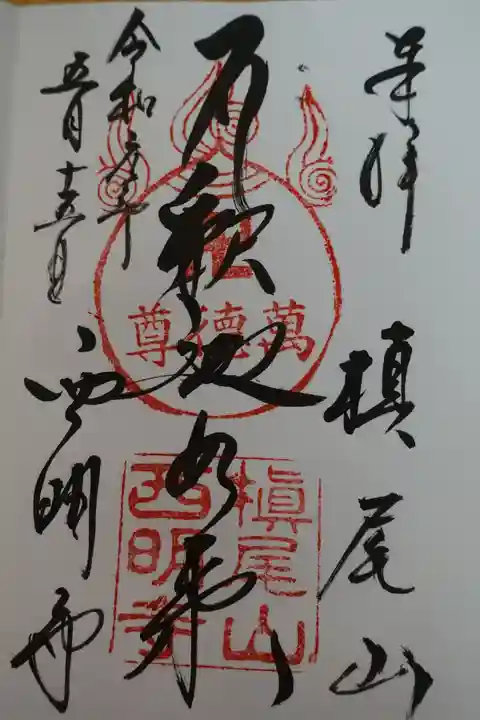 奉拝
槙尾山
釈迦如来
令和元年
五月十五日
西明寺
萬徳尊
槇尾山
西明寺